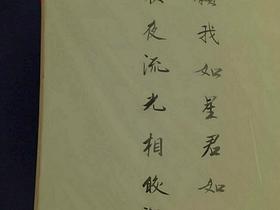 願我如星君如
夜流光相皎